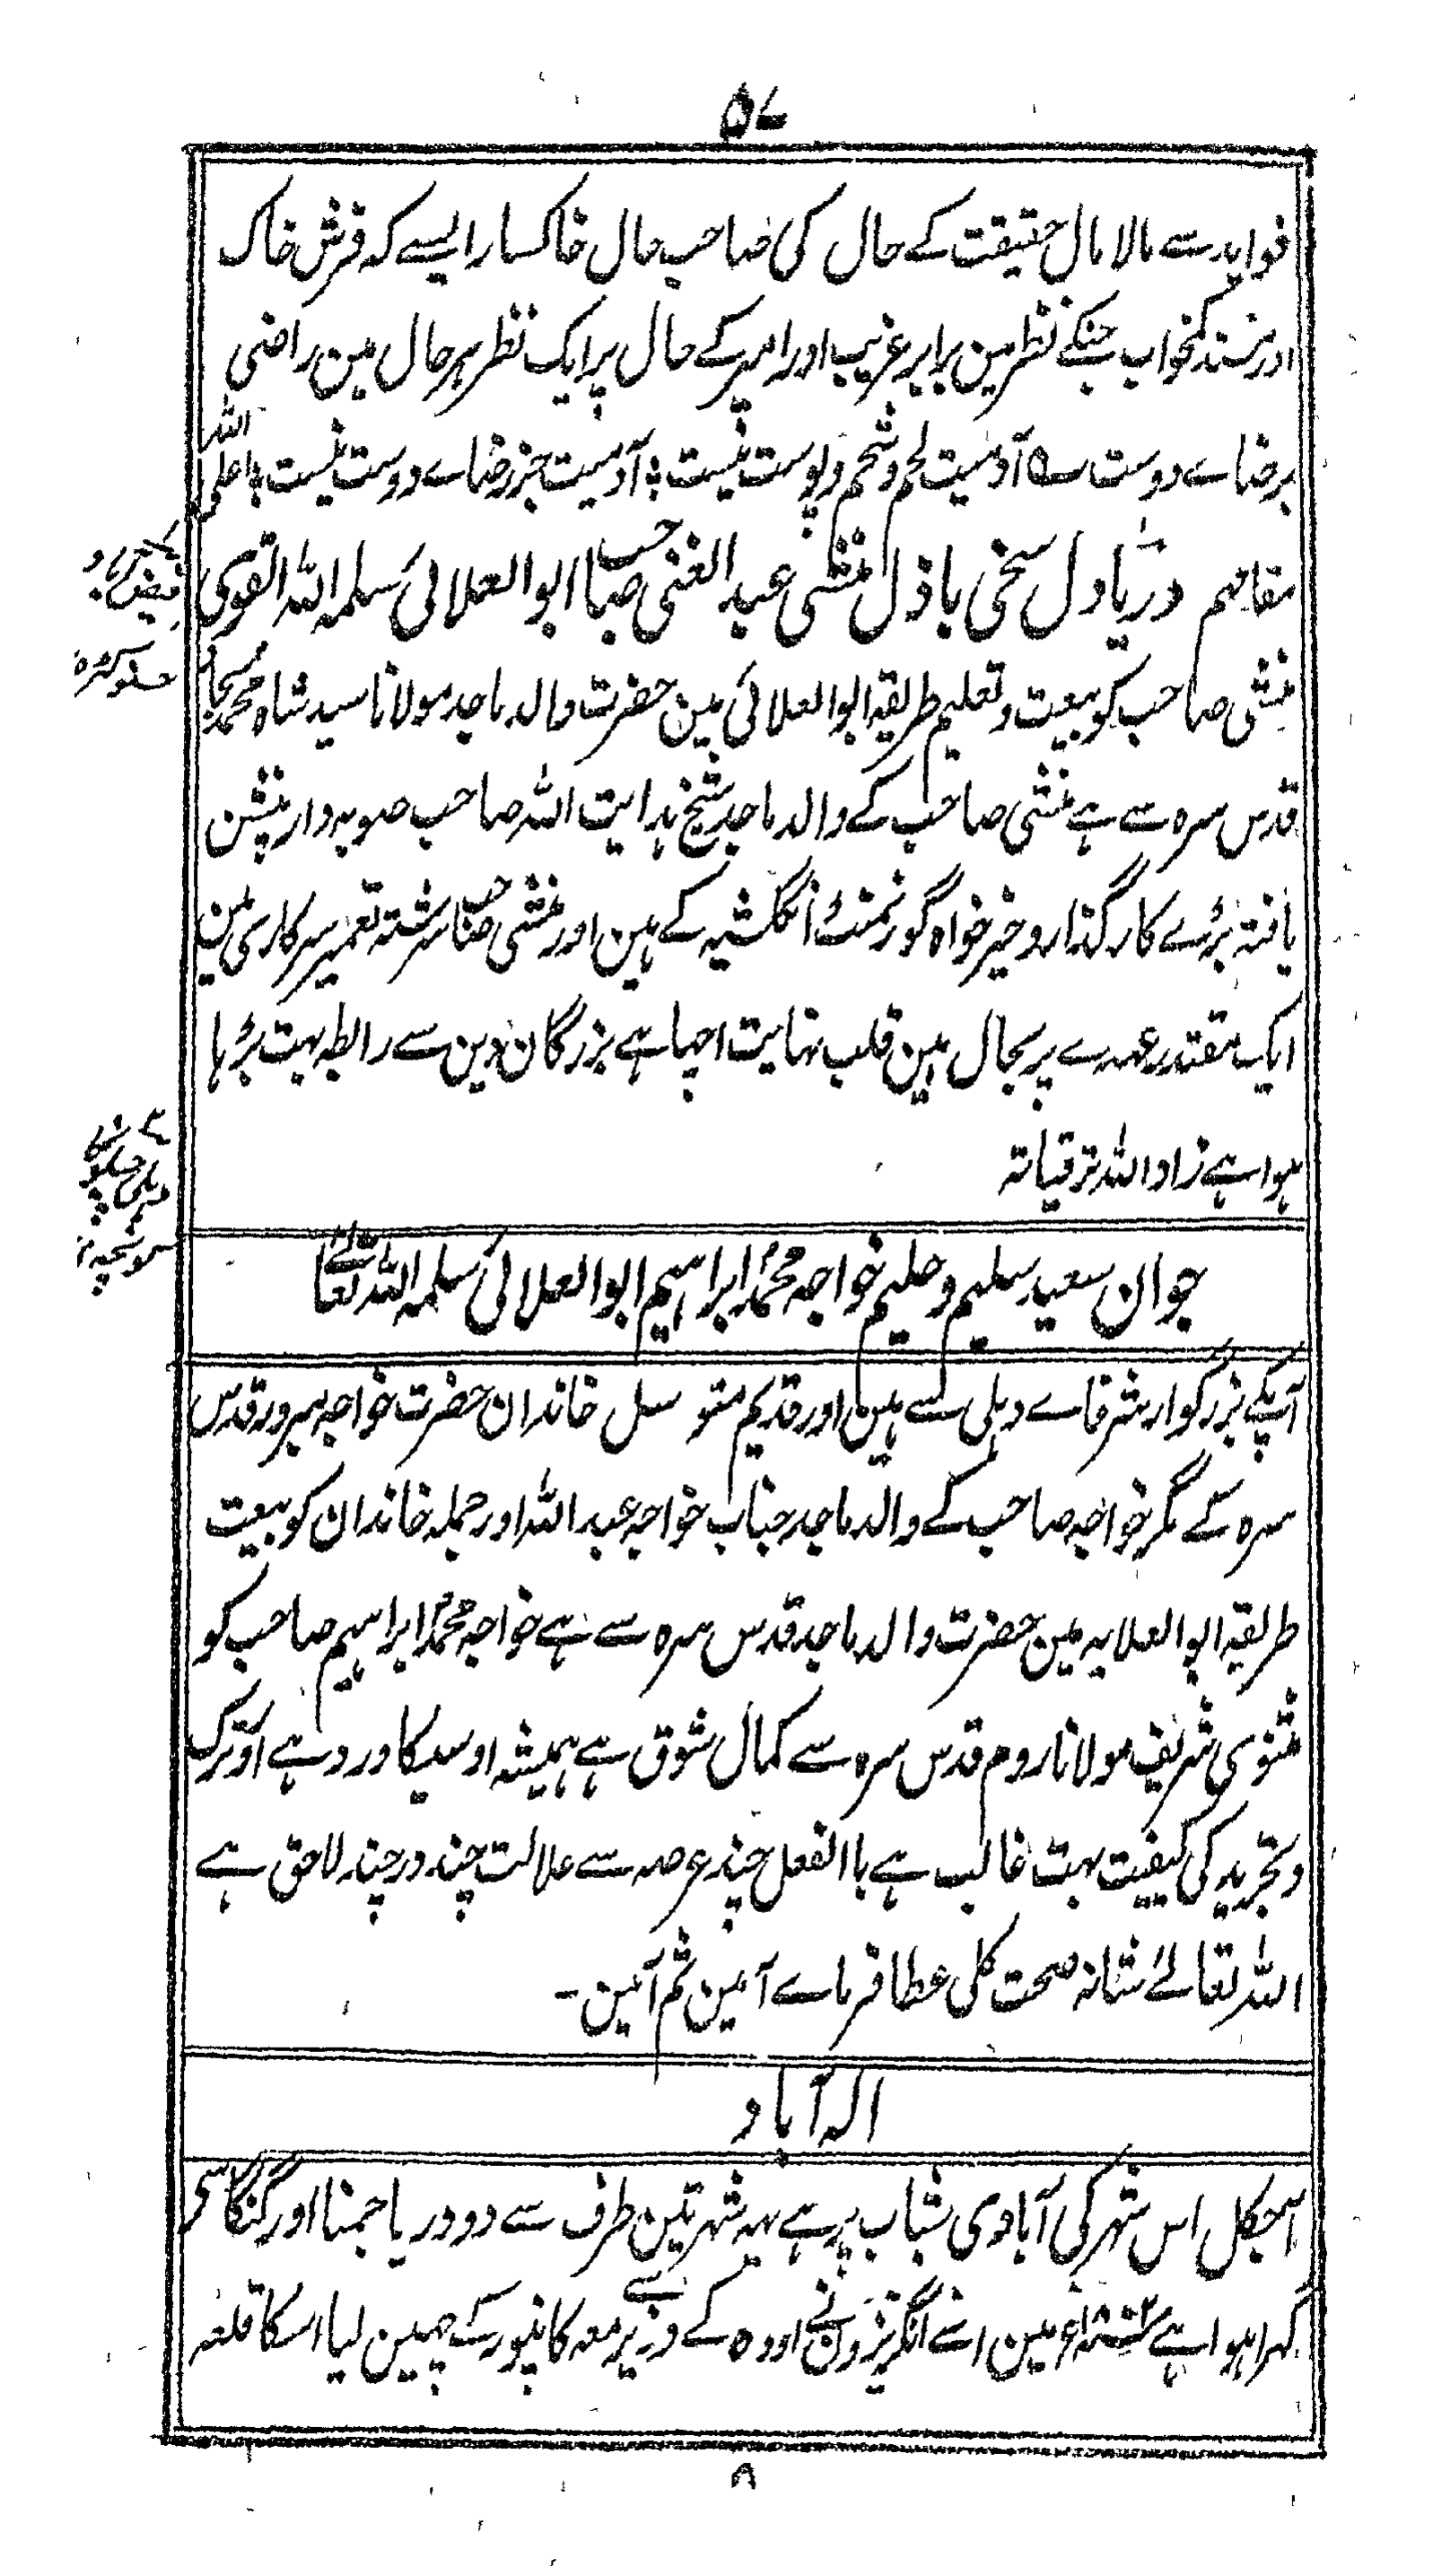 ۵۷
فوایدسے مالامال حقیقت کے حال کی صاحب حال خاکسار ایسے کہ فرش خاک
اور مسند کمخواب جنکے نظر مین برابر غریب اور امیر کے حال پر ایک نظر ہر حال مین راضی
برضاے دوست ؎ آدمیت لحم و شحم و پوست نیست ؛ آدمیت جز رضاے دوست نیست ؛ اعلی اللہ
مقامہم دریا دل سخی باذل منشی عبد الغنی صاحب ابوالعلائی سلمہ اللہ القوی
منشی صاحب کو بیعت و تعلیم طریقہ ابوالعلائی مین حضرت والد ماجد مولانا سید شاہ محمد سجاد
قدس سرہ سے ہے منشی صاحب کے والد ماجد شیخ ہدایت اللہ صاحب صوبہ دار پنشن
یافتہ بڑے کارگذار و خیر خواہ گورنمنٹ انگلشیہ کے ہین اور منشی صاحب سرشتہ تعمیر سرکاری مین
ایک مقتدر عہدے پر بحال ہین قلب نہایت اچہا ہے بزرگان دین سے رابطہ بہت بڑہا
ہوا ہے زاد اللہ ترقیاتہ
جوان سعید سلیم و حلیم خواجہ محمد ابراہیم ابوالعلائی سلمہ اللہ تعالےٰ
آپکے بزرگوار شرفاے دہلی سے ہین اور قدیم متوسل خاندان حضرت خواجہ میر درد قدس
سرہ کے مگر خواجہ صاحب کے والد ماجد جناب خواجہ عبد اللہ اور جملہ خاندان کو بیعت
طریقہ ابوالعلایہ مین حضرت والد ماجد قدس سرہ سے ہے خواجہ محمد ابراہیم صاحب کو
مثنوی شریف مولانا روم قدس سرہ سے کمال شوق ہے ہمیشہ اوسیکا ورد ہے اور ترک
و تجرید کی کیفیت بہت غالب ہے باالفعل چند عرصہ سے علالت چند در چند لاحق ہے
اللہ تعالےٰ شانہ صحت کلی عطا فرماے آمین ثم آمین۔
الہ آباد
آجکل اس شہر کی آبادی شباب پر ہے یہہ شہر تین طرف سے دو دریا جمنا اور گنگا سے
گہرا ہوا ہے مین اسے انگریزون نے اودہ کے وزیر سے معہ کانپور کے چہین لیا اسکا قلعہ
۸